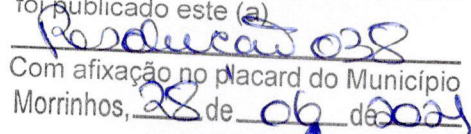 foi publicado este (a)
Resolucaõ 038
Com afixação no placard do Município
Morrinhos, 28 de 06 de 2021